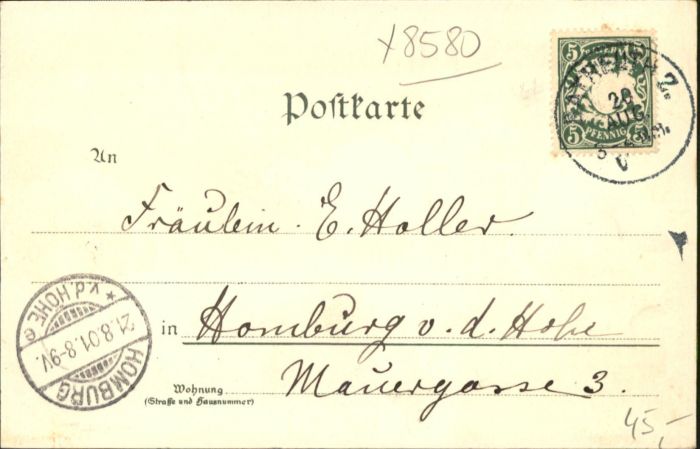 x8580
5 5
PFENNIG
BAYREUTH 2
20
AUG
Postkarte
An
Fräulein E. Holler.
in Homburg v. d. Hohe
Wohnung Mauergasse 3.
(Straße und Hausnummer)
HOMBURG
* v.d. HÖHE e
21.8.01.8-9V.
45,-